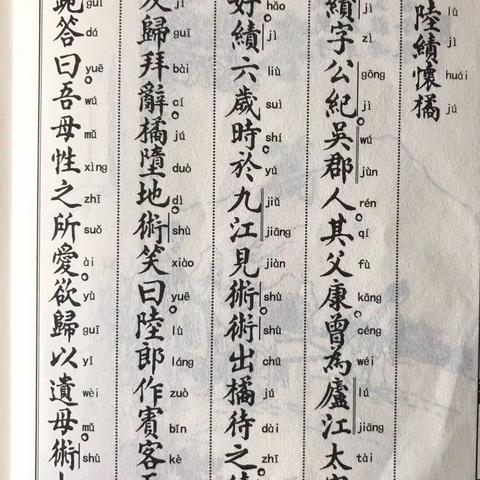 陸績懷橘
lù jì huái jú
績字公紀。吳郡人。其父康。曾為廬江太
jì zì gōng jì wú jùn rén qí fù kāng céng wéi lú jiāng tài
好。績六歲時。於九江見術。術出橘待之。
hǎo jì liù suì shí yú jiǔ jiāng jiàn shù shù chū jú dài zhī
及歸拜辭。橘墮地。術笑曰。陸郎作賓客
jí guī bài cí jú duò dì shù xiào yuē lù láng zuò bīn kè
跪答曰。吾母性之所愛。欲歸以遺母。術
guì dá yuē wú mǔ xìng zhī suǒ ài yù guī yǐ wèi mǔ shù